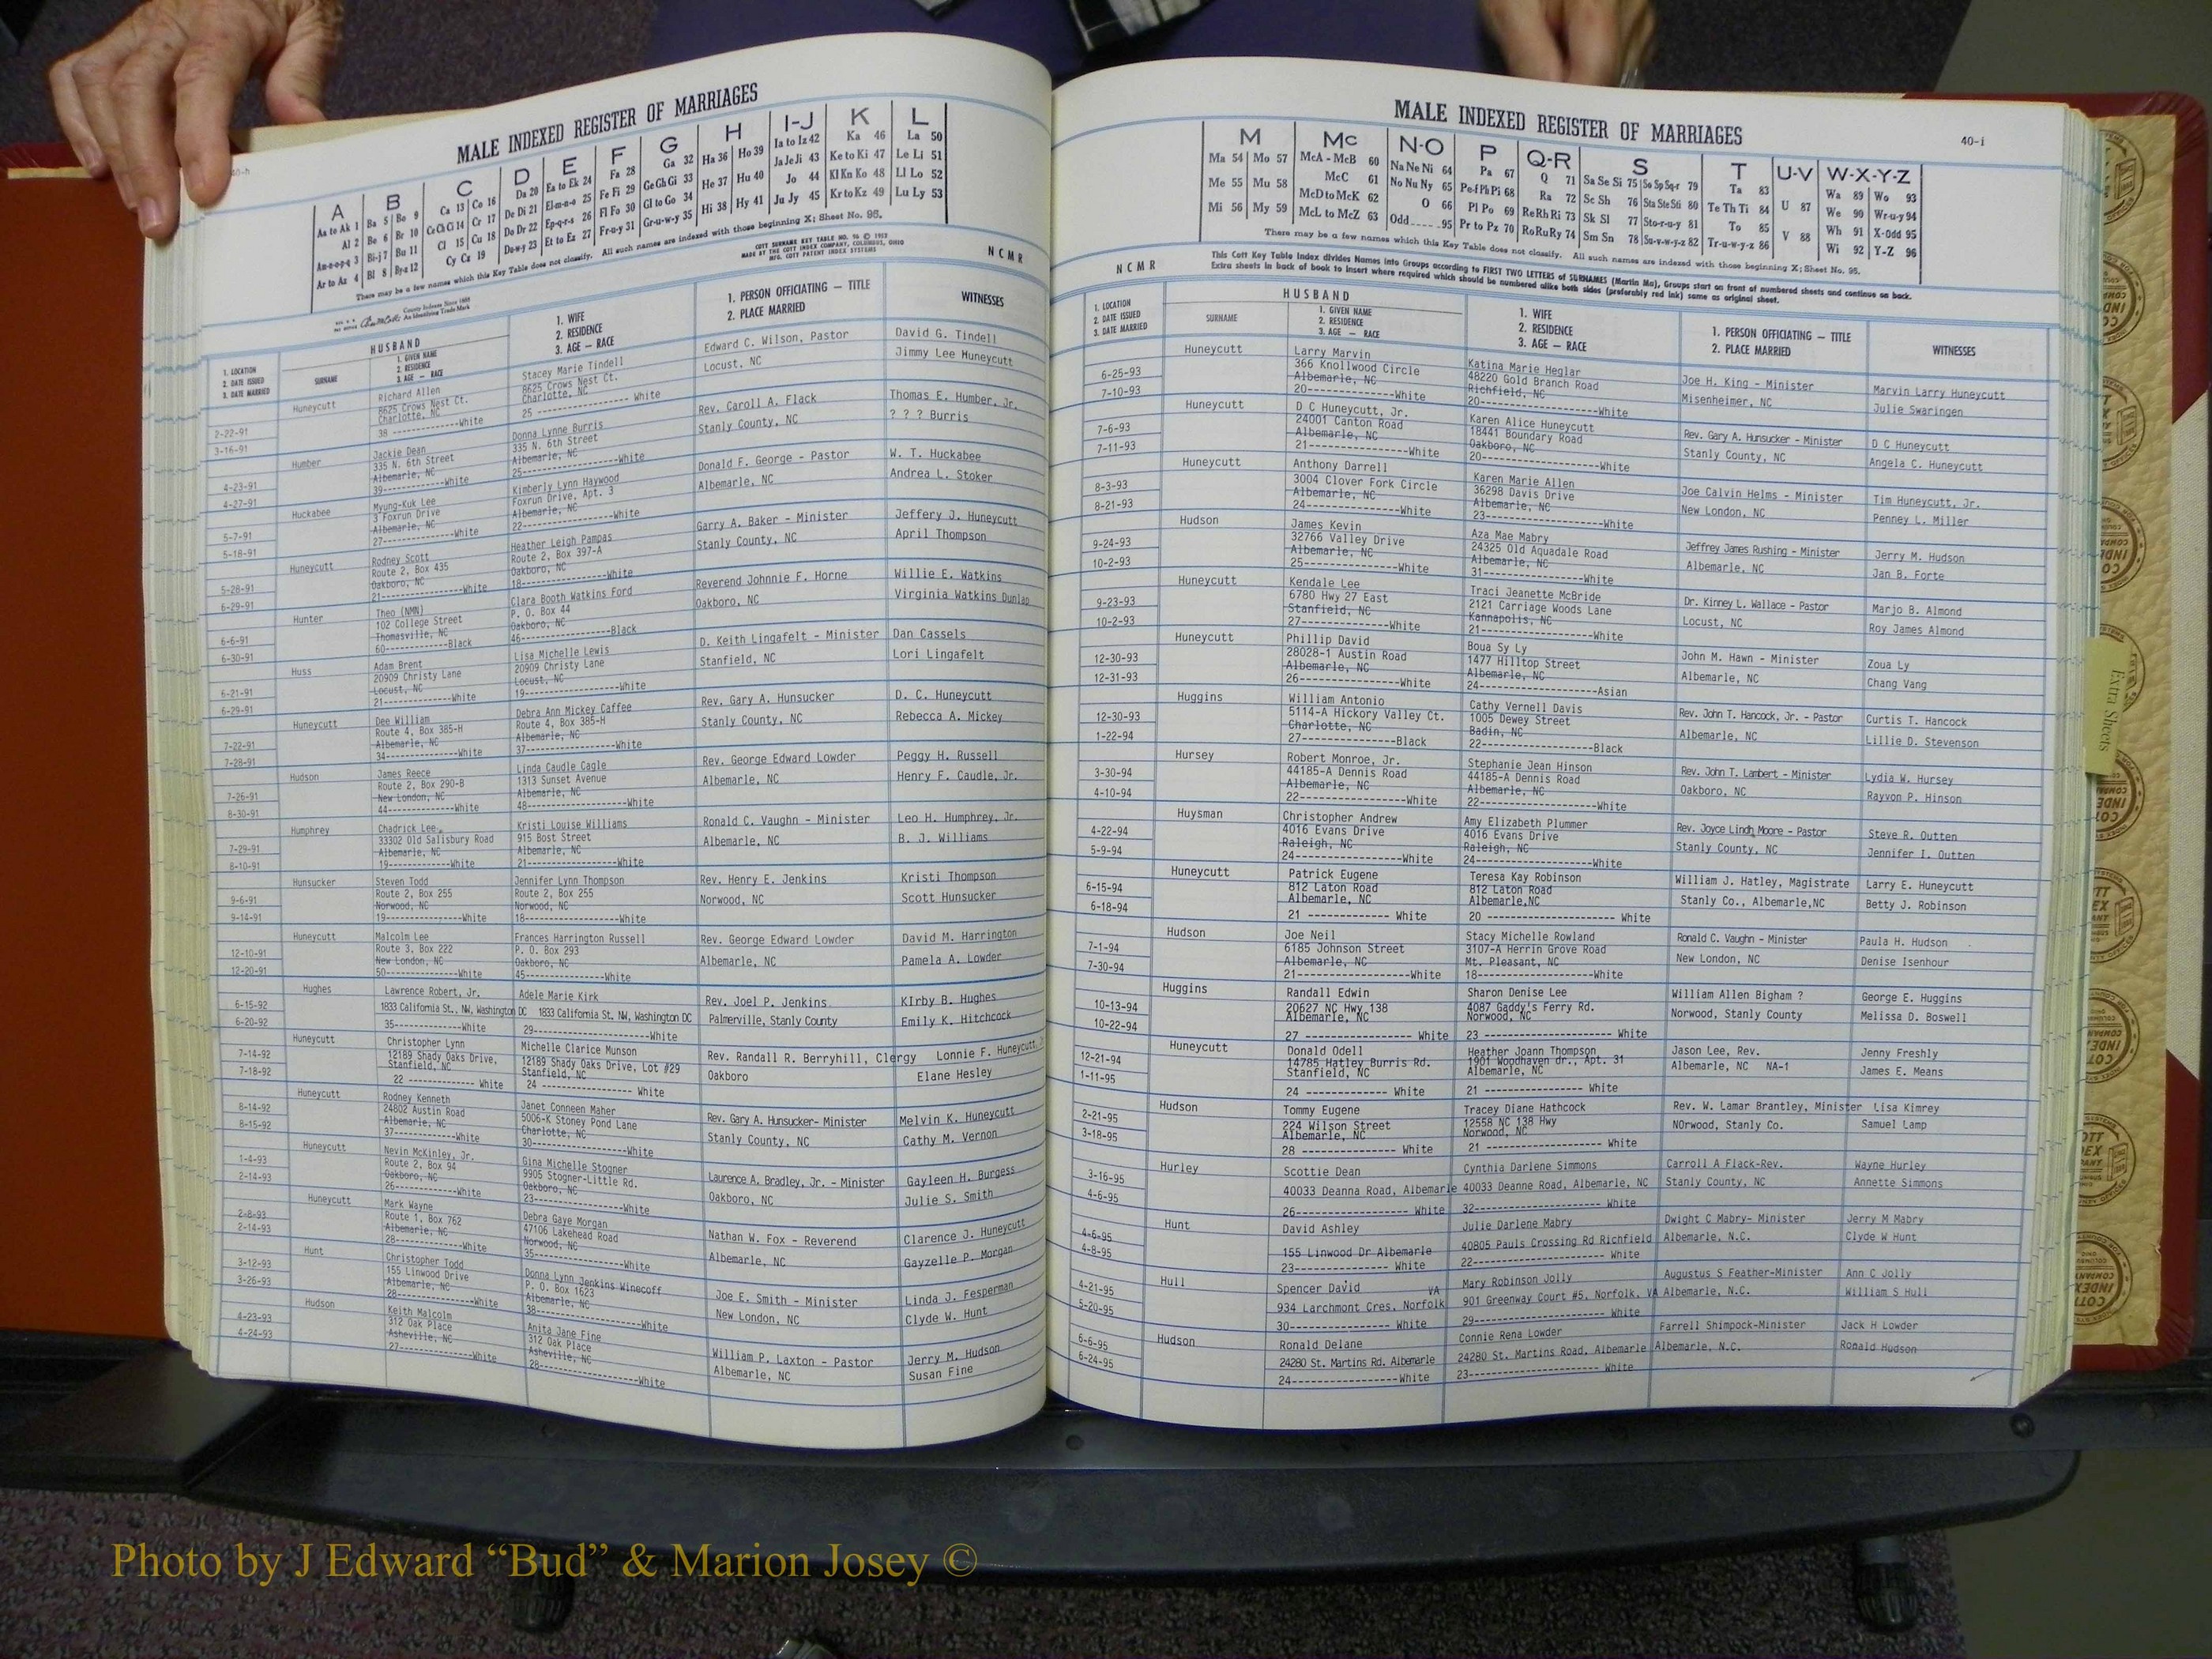 MALE INDEXED REGISTER OF MARRIAGES
40-h
A B C D E F G H I-J K L
Aa to Ak 1 Ba 5 Bo 9 Ca 13 Co 16 Da 20 Ea to Ek 24 Fa 28 Ga 32 Ha 36 Ho 39 Ia to Iz 42 Ka 46 La 50
Al 2 Be 6 Br 10 Ce Ch Ci 14 Cr 17 De Di 21 El-m-n-o 25 Fe Fi 29 Ge Gh Gi 33 He 37 Hu 40 Ja Je Ji 43 Ke to Ki 47 Le Li 51
Am-n-o-p-q 3 Bi-j 7 Bu 11 Cl 15 Cu 18 Do Dr 22 Ep-q-r-s 26 Fl Fo 30 Gl to Go 34 Hi 38 Hy 41 Jo 44 Kl Kn Ko 48 Ll Lo 52
Ar to Az 4 Bl 8 By-z 12 Cy Cz 19 Du-w-y 23 Et to Ez 27 Fr-u-y 31 Gr-u-w-y 35 Ju Jy 45 Kr to Kz 49 Lu Ly 53
There may be a few names which this Key Table does not classify. All such names are indexed with those beginning X; Sheet No. 95.
COTT SURNAME KEY TABLE NO. 96 © 1952
MADE BY THE COTT INDEX COMPANY, COLUMBUS, OHIO
MFG. COTT PATENT INDEX SYSTEMS
NCMR
County Indexes Since 1888
An Identifying Trade Mark
1. LOCATION
2. DATE ISSUED
3. DATE MARRIED
HUSBAND
SURNAME
1. GIVEN NAME
2. RESIDENCE
3. AGE — RACE
1. WIFE
2. RESIDENCE
3. AGE — RACE
1. PERSON OFFICIATING — TITLE
2. PLACE MARRIED
WITNESSES
Huneycutt Richard Allen Stacey Marie Tindell Edward C. Wilson, Pastor David G. Tindell
8625 Crows Nest Ct. 8625 Crows Nest Ct. Locust, NC Jimmy Lee Huneycutt
2-22-91 Charlotte, NC Charlotte, NC
3-16-91 38 White 25 White
Humber Jackie Dean Donna Lynne Burris Rev. Caroll A. Flack Thomas E. Humber, Jr.
335 N. 6th Street 335 N. 6th Street Stanly County, NC ? ? ? Burris
4-23-91 Albemarle, NC Albemarle, NC
4-27-91 39 White 25 White
Huckabee Myung-Kuk Lee Kimberly Lynn Haywood Donald F. George - Pastor W. T. Huckabee
3 Foxrun Drive Foxrun Drive, Apt. 3 Albemarle, NC Andrea L. Stoker
5-7-91 Albemarle, NC Albemarle, NC
5-18-91 27 White 22 White
Huneycutt Rodney Scott Heather Leigh Pampas Garry A. Baker - Minister Jeffery J. Huneycutt
Route 2, Box 435 Route 2, Box 397-A Stanly County, NC April Thompson
5-28-91 Oakboro, NC Oakboro, NC
6-29-91 21 White 18 White
Hunter Theo (NMN) Clara Booth Watkins Ford Reverend Johnnie F. Horne Willie E. Watkins
102 College Street P. O. Box 44 Oakboro, NC Virginia Watkins Dunlap
6-6-91 Thomasville, NC Oakboro, NC
6-30-91 60 Black 46 Black
Huss Adam Brent Lisa Michelle Lewis D. Keith Lingafelt - Minister Dan Cassels
20909 Christy Lane 20909 Christy Lane Stanfield, NC Lori Lingafelt
6-21-91 Locust, NC Locust, NC
6-29-91 21 White 19 White
Huneycutt Dee William Debra Ann Mickey Caffee Rev. Gary A. Hunsucker D. C. Huneycutt
Route 4, Box 385-H Route 4, Box 385-H Stanly County, NC Rebecca A. Mickey
7-22-91 Albemarle, NC Albemarle, NC
7-28-91 34 White 37 White
Hudson James Reece Linda Caudle Cagle Rev. George Edward Lowder Peggy H. Russell
Route 2, Box 290-B 1313 Sunset Avenue Albemarle, NC Henry F. Caudle, Jr.
7-26-91 New London, NC Albemarle, NC
8-30-91 44 White 48 White
Humphrey Chadrick Lee Kristi Louise Williams Ronald C. Vaughn - Minister Leo H. Humphrey, Jr.
33302 Old Salisbury Road 915 Bost Street Albemarle, NC B. J. Williams
7-29-91 Albemarle, NC Albemarle, NC
8-10-91 19 White 21 White
Hunsucker Steven Todd Jennifer Lynn Thompson Rev. Henry E. Jenkins Kristi Thompson
Route 2, Box 255 Route 2, Box 255 Norwood, NC Scott Hunsucker
9-6-91 Norwood, NC Norwood, NC
9-14-91 19 White 18 White
Huneycutt Malcolm Lee Frances Harrington Russell Rev. George Edward Lowder David M. Harrington
Route 3, Box 222 P. O. Box 293 Albemarle, NC Pamela A. Lowder
12-10-91 New London, NC Oakboro, NC
12-20-91 50 White 45 White
Hughes Lawrence Robert, Jr. Adele Marie Kirk Rev. Joel P. Jenkins KIrby B. Hughes
6-15-92 1833 California St., NW, Washington DC 1833 California St. NW, Washington DC Palmerville, Stanly County Emily K. Hitchcock
6-20-92 35 White 29 White
Huneycutt Christopher Lynn Michelle Clarice Munson Rev. Randall R. Berryhill, Clergy Lonnie F. Huneycutt,
7-14-92 12189 Shady Oaks Drive, 12189 Shady Oaks Drive, Lot #29 Oakboro Elane Hesley
7-18-92 Stanfield, NC Stanfield, NC
22 White 24 White
Huneycutt Rodney Kenneth Janet Conneen Maher Rev. Gary A. Hunsucker- Minister Melvin K. Huneycutt
8-14-92 24802 Austin Road 5006-K Stoney Pond Lane Stanly County, NC Cathy M. Vernon
8-15-92 Albemarle, NC Charlotte, NC
37 White 30 White
Huneycutt Nevin McKinley, Jr. Gina Michelle Stogner Laurence A. Bradley, Jr. - Minister Gayleen H. Burgess
1-4-93 Route 2, Box 94 9905 Stogner-Little Rd. Oakboro, NC Julie S. Smith
2-14-93 Oakboro, NC Oakboro, NC
26 White 23 White
Huneycutt Mark Wayne Debra Gaye Morgan Nathan W. Fox - Reverend Clarence J. Huneycutt
2-8-93 Route 1, Box 762 47106 Lakehead Road Albemarle, NC Gayzelle P. Morgan
2-14-93 Albemarle, NC Norwood, NC
28 White 35 White
Hunt Christopher Todd Donna Lynn Jenkins Winecoff Joe E. Smith - Minister Linda J. Fesperman
3-12-93 155 Linwood Drive P. O. Box 1623 New London, NC Clyde W. Hunt
3-26-93 Albemarle, NC Albemarle, NC
28 White 38 White
Hudson Keith Malcolm Anita Jane Fine William P. Laxton - Pastor Jerry M. Hudson
4-23-93 312 Oak Place 312 Oak Place Albemarle, NC Susan Fine
4-24-93 Asheville, NC Asheville, NC
27 White 28 White
MALE INDEXED REGISTER OF MARRIAGES
40-i
M Mc N-O P Q-R S T U-V W-X-Y-Z
Ma 54 Mo 57 McA - McB 60 Na Ne Ni 64 Pa 67 Q 71 Sa Se Si 75 So Sp Sq-r 79 Ta 83 U 87 Wa 89 Wo 93
Me 55 Mu 58 McC 61 No Nu Ny 65 Pe-f Ph Pi 68 Ra 72 Sc Sh 76 Sta Ste Sti 80 Te Th Ti 84 V 88 We 90 Wr-u-y 94
Mi 56 My 59 McD to McK 62 O 66 Pl Po 69 Re Rh Ri 73 Sk Sl 77 Sto-r-u-y 81 To 85 Wh 91 X-Odd 95
McL to McZ 63 Odd 95 Pr to Pz 70 Ro Ru Ry 74 Sm Sn 78 Su-v-w-y-z 82 Tr-u-w-y-z 86 Wi 92 Y-Z 96
There may be a few names which this Key Table does not classify. All such names are indexed with those beginning X; Sheet No. 95.
This Cott Key Table Index divides Names into Groups according to FIRST TWO LETTERS of SURNAMES (Martin Ma), Groups start on front of numbered sheets and continue on back.
Extra sheets in back of book to insert where required which should be numbered alike both sides (preferably red ink) same as original sheet.
NCMR
1. LOCATION
2. DATE ISSUED
3. DATE MARRIED
HUSBAND
SURNAME
1. GIVEN NAME
2. RESIDENCE
3. AGE — RACE
1. WIFE
2. RESIDENCE
3. AGE — RACE
1. PERSON OFFICIATING — TITLE
2. PLACE MARRIED
WITNESSES
Huneycutt Larry Marvin Katina Marie Heglar Joe H. King - Minister Marvin Larry Huneycutt
6-25-93 366 Knollwood Circle 48220 Gold Branch Road Misenheimer, NC Julie Swaringen
7-10-93 Albemarle, NC Richfield, NC
20 White 20 White
Huneycutt D C Huneycutt, Jr. Karen Alice Huneycutt Rev. Gary A. Hunsucker - Minister D C Huneycutt
7-6-93 24001 Canton Road 18441 Boundary Road Stanly County, NC Angela C. Huneycutt
7-11-93 Albemarle, NC Oakboro, NC
21 White 20 White
Huneycutt Anthony Darrell Karen Marie Allen Joe Calvin Helms - Minister Tim Huneycutt, Jr.
8-3-93 3004 Clover Fork Circle 36298 Davis Drive New London, NC Penney L. Miller
8-21-93 Albemarle, NC Albemarle, NC
24 White 23 White
Hudson James Kevin Aza Mae Mabry Jeffrey James Rushing - Minister Jerry M. Hudson
9-24-93 32766 Valley Drive 24325 Old Aquadale Road Albemarle, NC Jan B. Forte
10-2-93 Albemarle, NC Albemarle, NC
25 White 31 White
Huneycutt Kendale Lee Traci Jeanette McBride Dr. Kinney L. Wallace - Pastor Marjo B. Almond
9-23-93 6780 Hwy 27 East 2121 Carriage Woods Lane Locust, NC Roy James Almond
10-2-93 Stanfield, NC Kannapolis, NC
27 White 21 White
Huneycutt Phillip David Boua Sy Ly John M. Hawn - Minister Zoua Ly
12-30-93 28028-1 Austin Road 1477 Hilltop Street Albemarle, NC Chang Vang
12-31-93 Albemarle, NC Albemarle, NC
26 White 24 Asian
Huggins William Antonio Cathy Vernell Davis Rev. John T. Hancock, Jr. - Pastor Curtis T. Hancock
12-30-93 5114-A Hickory Valley Ct. 1005 Dewey Street Albemarle, NC Lillie D. Stevenson
1-22-94 Charlotte, NC Badin, NC
27 Black 22 Black
Hursey Robert Monroe, Jr. Stephanie Jean Hinson Rev. John T. Lambert - Minister Lydia W. Hursey
3-30-94 44185-A Dennis Road 44185-A Dennis Road Oakboro, NC Rayvon P. Hinson
4-10-94 Albemarle, NC Albemarle, NC
22 White 22 White
Huysman Christopher Andrew Amy Elizabeth Plummer Rev. Joyce Lindh Moore - Pastor Steve R. Outten
4-22-94 4016 Evans Drive 4016 Evans Drive Stanly County, NC Jennifer I. Outten
5-9-94 Raleigh, NC Raleigh, NC
24 White 24 White
Huneycutt Patrick Eugene Teresa Kay Robinson William J. Hatley, Magistrate Larry E. Huneycutt
6-15-94 812 Laton Road 812 Laton Road Stanly Co., Albemarle,NC Betty J. Robinson
6-18-94 Albemarle, NC Albemarle,NC
21 White 20 White
Hudson Joe Neil Stacy Michelle Rowland Ronald C. Vaughn - Minister Paula H. Hudson
7-1-94 6185 Johnson Street 3107-A Herrin Grove Road New London, NC Denise Isenhour
7-30-94 Albemarle, NC Mt. Pleasant, NC
21 White 18 White
Huggins Randall Edwin Sharon Denise Lee William Allen Bigham ? George E. Huggins
10-13-94 20627 NC Hwy 138 4087 Gaddy's Ferry Rd. Norwood, Stanly County Melissa D. Boswell
10-22-94 Albemarle, NC Norwood, NC
27 White 23 White
Huneycutt Donald Odell Heather Joann Thompson Jason Lee, Rev. Jenny Freshly
12-21-94 14785 Hatley Burris Rd. 1901 Woodhaven dr., Apt. 31 Albemarle, NC NA-1 James E. Means
1-11-95 Stanfield, NC Albemarle, NC
24 White 21 White
Hudson Tommy Eugene Tracey Diane Hathcock Rev. W. Lamar Brantley, Minister Lisa Kimrey
2-21-95 224 Wilson Street 12558 NC 138 Hwy NOrwood, Stanly Co. Samuel Lamp
3-18-95 Albemarle, NC Norwood, NC
28 White 21 White
Hurley Scottie Dean Cynthia Darlene Simmons Carroll A Flack-Rev. Wayne Hurley
3-16-95 40033 Deanna Road, Albemarle 40033 Deanne Road, Albemarle, NC Stanly County, NC Annette Simmons
4-6-95 26 White 32 White
Hunt David Ashley Julie Darlene Mabry Dwight C Mabry- Minister Jerry M Mabry
4-6-95 155 Linwood Dr Albemarle 40805 Pauls Crossing Rd Richfield Albemarle, N.C. Clyde W Hunt
4-8-95 23 White 22 White
Hull Spencer David Mary Robinson Jolly Augustus S Feather-Minister Ann C Jolly
4-21-95 934 Larchmont Cres, Norfolk VA 901 Greenway Court #5, Norfolk, VA Albemarle, N.C. William S Hull
5-20-95 30 White 29 White
Hudson Ronald Delane Connie Rena Lowder Farrell Shimpock-Minister Jack H Lowder
6-6-95 24280 St. Martins Rd, Albemarle 24280 St. Martins Road, Albemarle Albemarle, N.C. Ronald Hudson
6-24-95 24 White 23 White
Extra Sheets
Photo by J Edward “Bud” & Marion Josey ©